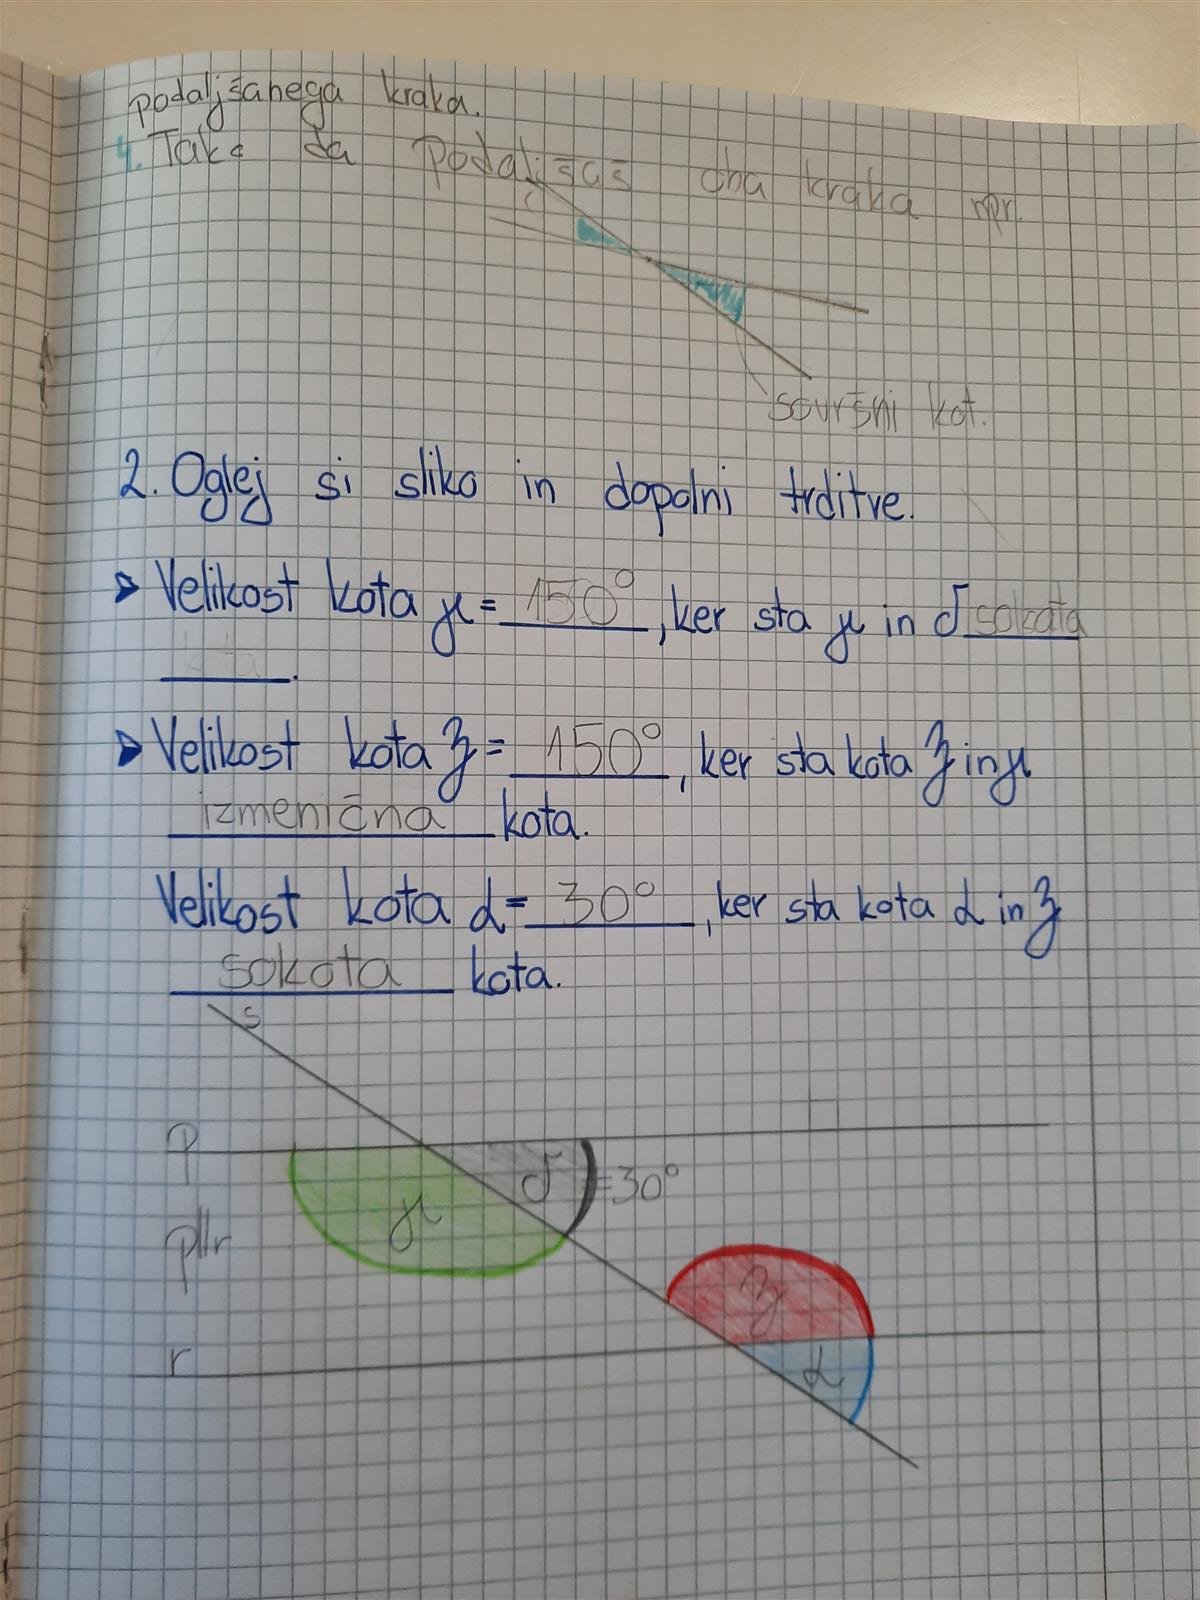 podaljšanega kraka.
4. Tako da podaljšaš oba kraka npr.
sovršni kot.
2. Oglej si sliko in dopolni trditve.
Velikost kota γ = 150°, ker sta γ in δ sokota
kota.
Velikost kota β = 150°, ker sta kota β in γ
izmenična kota.
Velikost kota α = 30°, ker sta kota α in β
sokota kota.
s
p
δ = 30°
γ
p||r
β
r
α